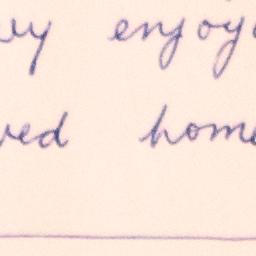 ey enjoy
ved home